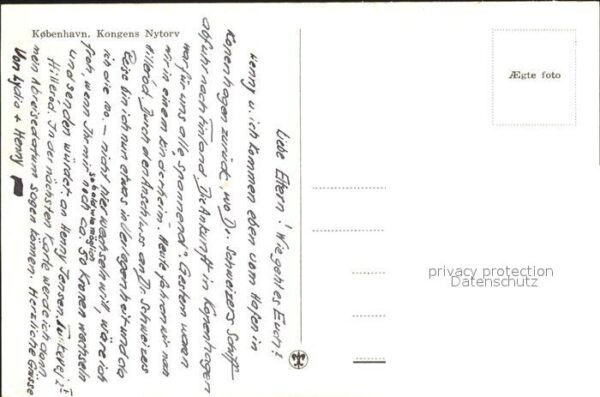 København. Kongens Nytorv
Ægte foto
Liebe Eltern! Wie geht es Euch?
Henny u. ich kommen eben vom Hafen in
Kopenhagen zurück, wo Dr. Schweizers Schiff
abfuhr nach Finland. Die Ankunft in Kopenhagen
war für uns alle spannend". Gestern waren
wir in einem Kinderheim. Heute fahren wir nach
Hilleröd. Durch den Anschluss an Dr. Schweizers
Reise bin ich nun etwas in Verlegenheit und da
ich die 100,- nicht hier wechseln will, wäre ich
froh, wenn Ihr mir noch ca. 50 Kronen wechseln
sobald wie möglich
und senden würdet an Henny Jensen,
Hilleröd. In der nächsten Karte werde ich dann
mein Abreisedatum sagen können. Herzliche Grüsse
Von Lydia + Henny
privacy protection
Datenschutz